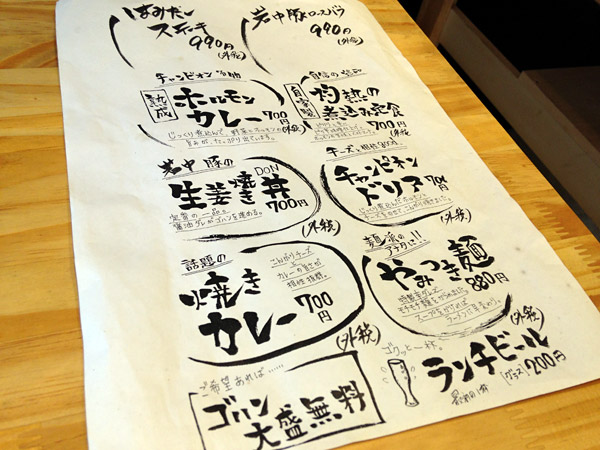 はみだし
ステーキ
990円
(外税)
岩中豚ロースバラ
990円
(外税)
チャンピオン
熟成
ホルモン
カレー
700円
(外税)
じっくり煮込んで、野菜とホルモンの
旨みが、たっぷり出ています。
自家製
灼熱の
煮込み定食
700円
(外税)
岩中豚の
生姜焼き丼
DON
700円
定番の一品。
醤油ダレがゴハンを進める。
(外税)
チーズと相性
チャンピオン
ドリア
700円
(外税)
話題の
焼き
カレー
700
円
こんがりチーズ
と
カレーの旨さが
相性抜群。
(外税)
麺派の
アナタに!!
やみつき麺
880円
モチモチ麺
スープをかければ
ラーメンに早変わり。
(外税)
ご希望あれば……
ゴハン
大盛無料
ゴクッと一杯。
ランチビール
[グラス] 200円